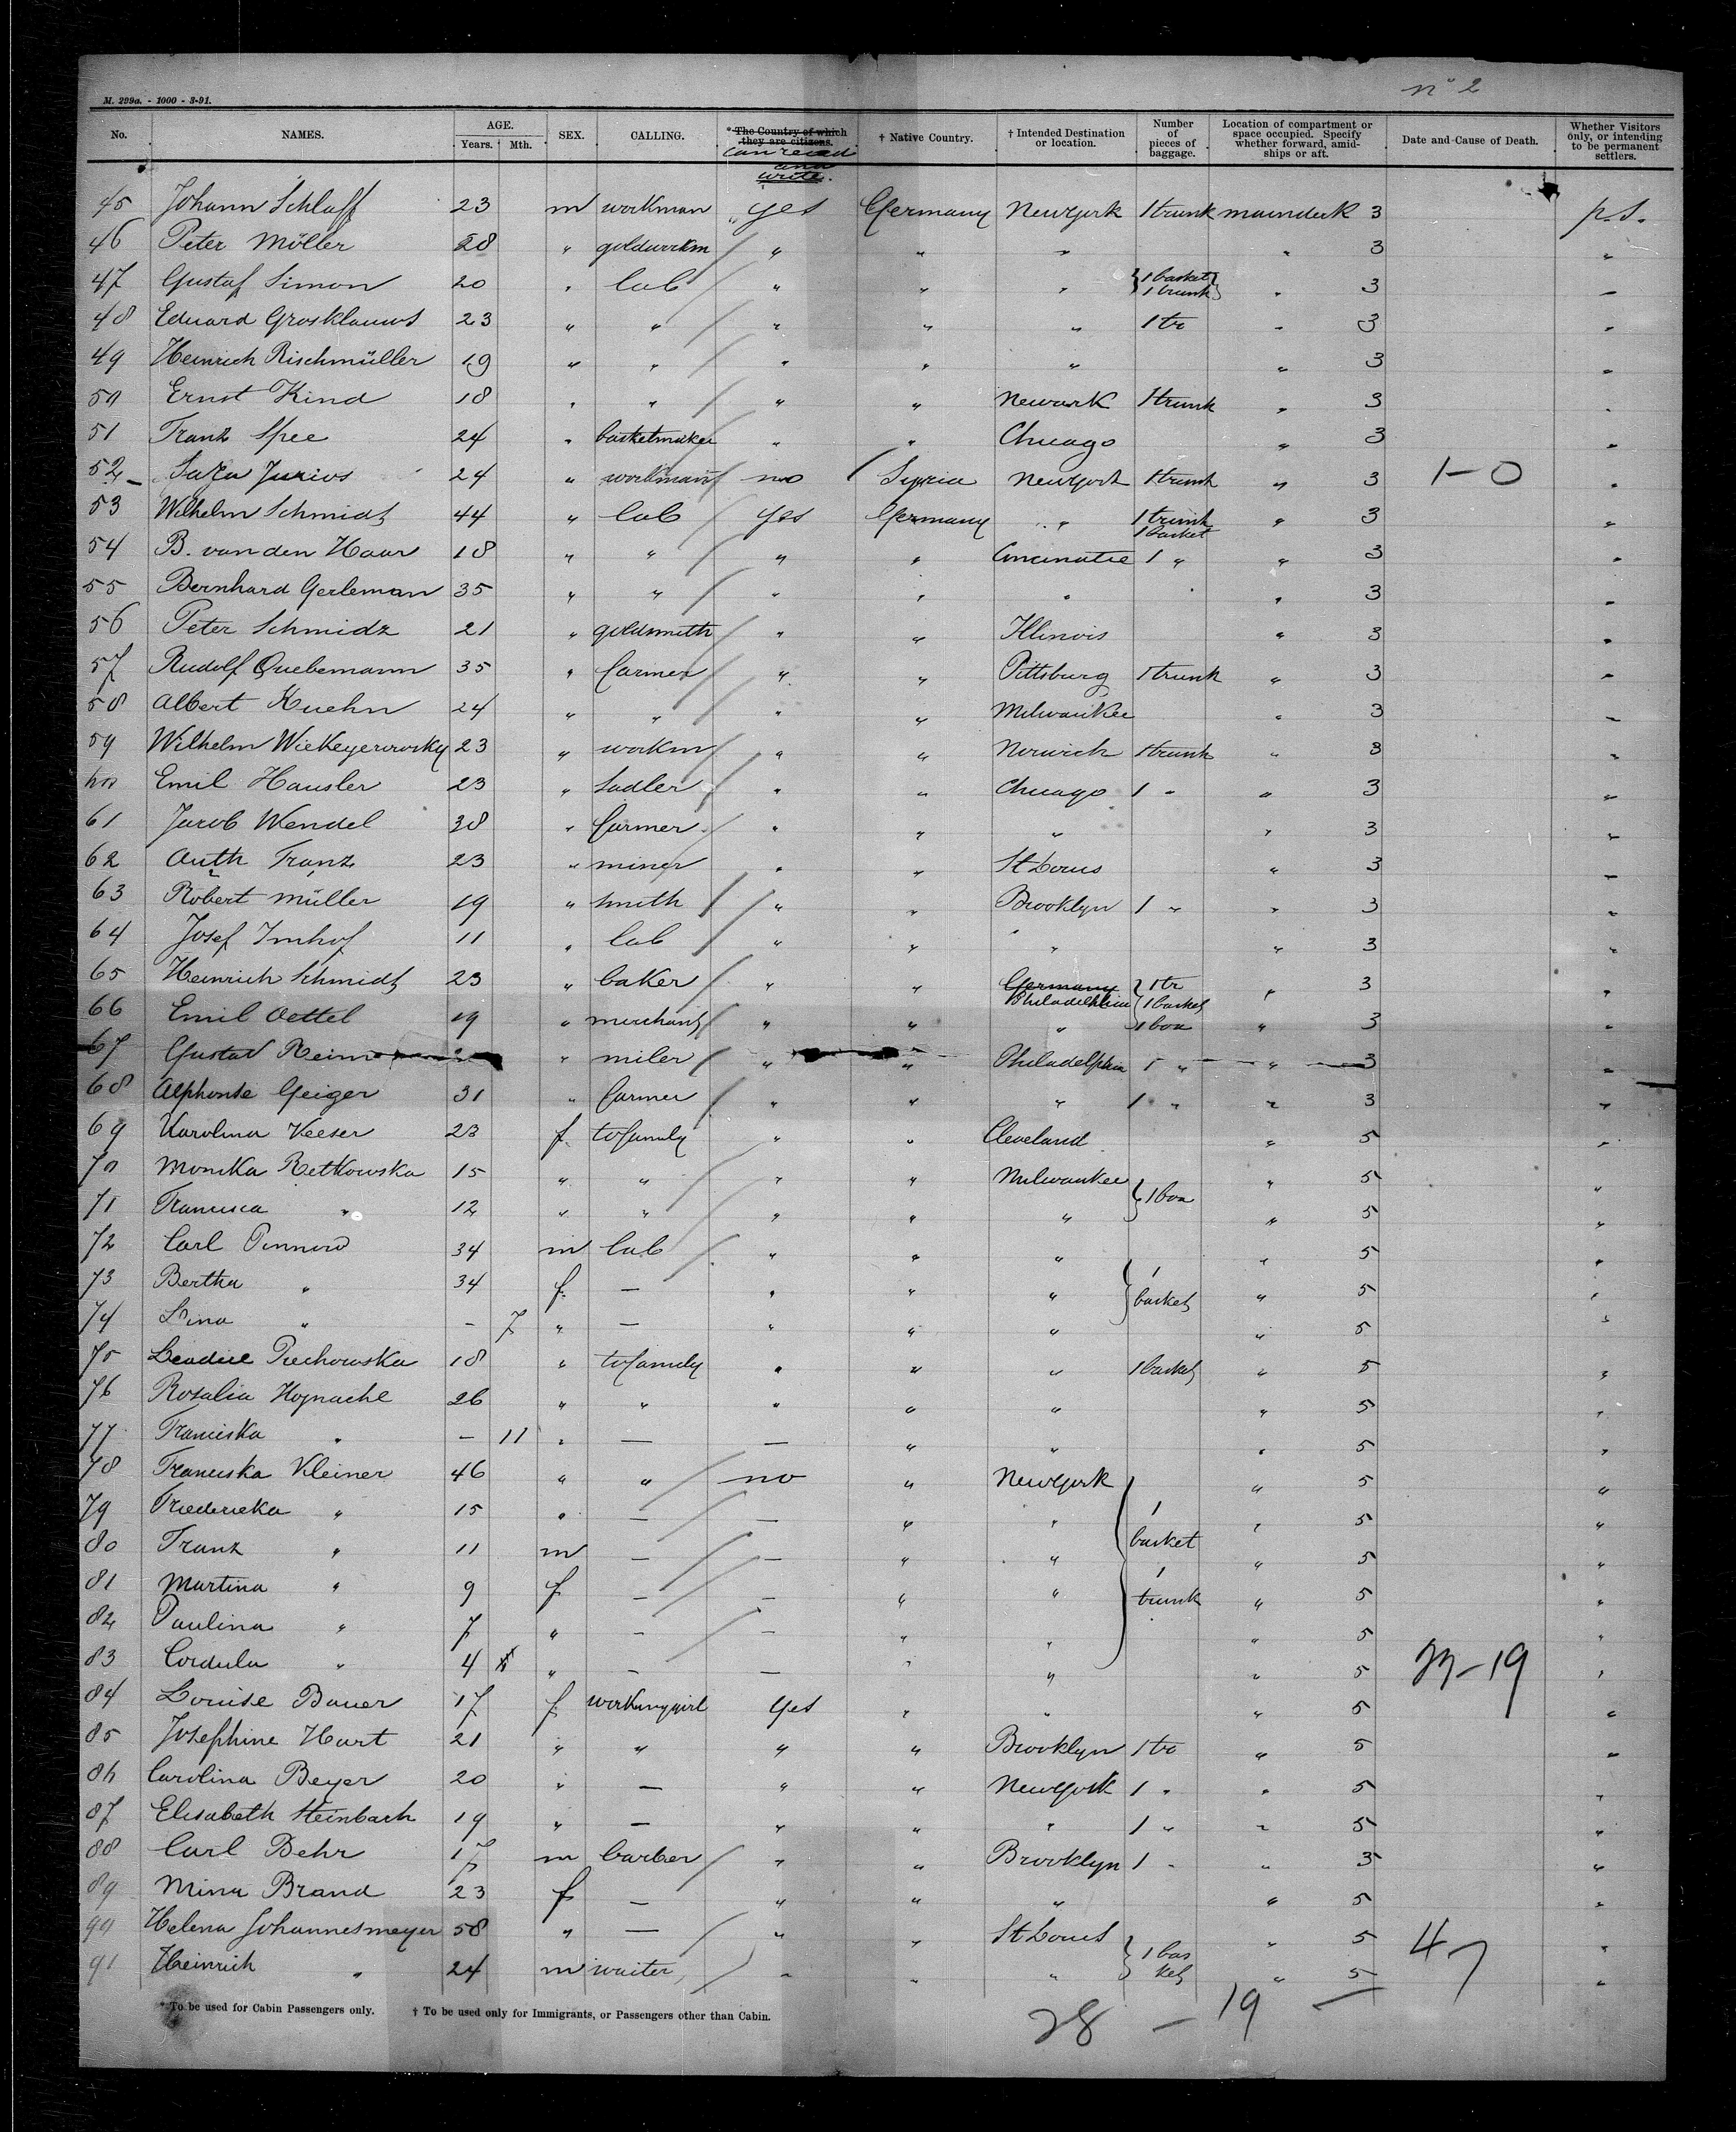 nº 2
M. 299a. - 1000 - 3-91.
No. NAMES. AGE. Years. Mth. SEX. CALLING. * The Country of which they are citizens. can read and write. † Native Country. † Intended Destination or location. Number of pieces of baggage. Location of compartment or space occupied. Specify whether forward, amidships or aft. Date and Cause of Death. Whether Visitors only, or intending to be permanent settlers.
45 Johann Schlaff 23 m workman yes Germany New York 1 trunk maindeck 3 p.s.
46 Peter Möller 28 " goldworkm " " " " 3 "
47 Gustaf Simon 20 " lab " " " 1 basket 1 trunk " 3 "
48 Eduard Grosklauws 23 " " " " " 1 tr " 3 "
49 Heinrich Rischmüller 19 " " " " " " 3 "
50 Ernst Kind 18 " " " " Newark 1 trunk " 3 "
51 Franz Spee 24 " basketmaker " " Chicago " 3 "
52 - 24 " workman no Syria New York 1 trunk " 3 1-0 "
53 Wilhelm Schmidt 44 " lab yes Germany " 1 trunk 1 basket " 3 "
54 B. van den Haar 18 " " " " Cincinatie 1 " " 3 "
55 Bernhard Gerleman 35 " " " " " " 3 "
56 Peter Schmidz 21 " goldsmith " " Illinois " 3 "
57 Rudolf Quebemann 35 " farmer " " Pittsburg 1 trunk " 3 "
58 Albert Kuehn 24 " " " " Milwaukee " 3 "
59 Wilhelm 23 " workm " " Norwich 1 trunk " 3 "
60 Emil Hausler 23 " Sadler " " Chicago 1 " " 3 "
61 Jacob Wendel 38 " farmer " " " " 3 "
62 Auth Franz 23 " miner " " St Louis " 3 "
63 Robert Müller 19 " smith " " Brooklyn 1 " " 3 "
64 Josef Imhof 11 " lab " " " " 3 "
65 Heinrich Schmidt 23 " baker " " Germany Philadelphia 1 tr 1 basket " 3 "
66 Emil Oettel 19 " merchant " " " 1 box " 3 "
67 Gustav " miler " " Philadelphia 1 " " 3 "
68 Alphonse Geiger 31 " farmer " " " 1 " " 3 "
69 Karolina Keeser 23 f to family " " Cleveland " 5 "
70 Monika Retkowska 15 " " " " Milwaukee 1 box " 5 "
71 Francisca " 12 " " " " " " 5 "
72 Carl Pinnow 34 m lab " " " " 5 "
73 Bertha " 34 f — " " " 1 basket " 5 "
74 Lina " – 7 " — " " " " 5 "
75 Piechowska 18 " to family " " " 1 basket " 5 "
76 Rosalia 26 " " " " " " 5 "
77 Franciska " – 11 " — — " " " 5 "
78 Franciska Kleiner 46 " " no " New York " 5 "
79 Friedericka " 15 " — — " " 1 basket " 5 "
80 Franz " 11 m — — " " " 5 "
81 Martina " 9 f — — " " 1 trunk " 5 "
82 Paulina " 7 " — — " " " 5 "
83 Cordula " 4 " — — " " " 5 27-19 "
84 Louise Bauer 17 f workinggirl yes " " " 5 "
85 Josephine Hart 21 " " " " Brooklyn 1 tr " 5 "
86 Carolina Beyer 20 " — " " New York 1 " " 5 "
87 Elisabeth Steinbach 19 " — " " " 1 " " 5 "
88 Carl Behr 17 m barber " " Brooklyn 1 " " 3 "
89 Mina Brand 23 f — " " " " 5 "
90 Helena Johannesmeyer 58 " — " " St Louis 1 basket " 5 47 "
91 Heinrich " 24 m waiter " " " " 5 "
* To be used for Cabin Passengers only. † To be used only for Immigrants, or Passengers other than Cabin.
28 — 19 —